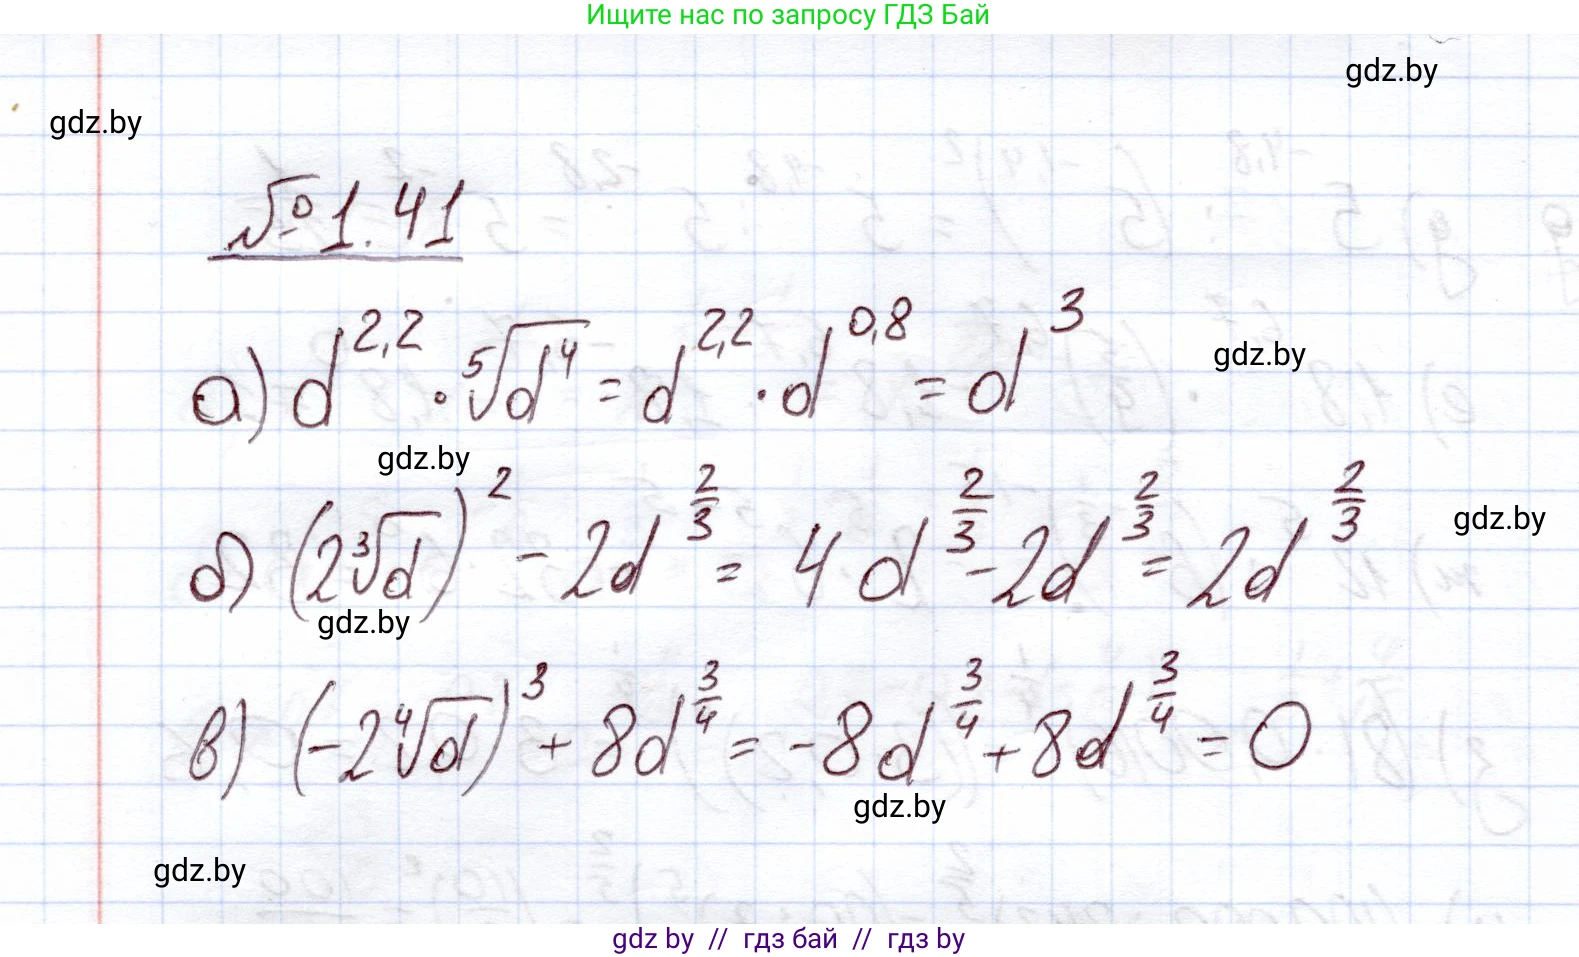 Ищите нас по запросу ГДЗ Бай
gdz.by
gdz.by
№1.41
а) d^{2,2} · \sqrt[5]{d^4} = d^{2,2} · d^{0,8} = d^3
gdz.by
gdz.by
б) (2\sqrt[3]{d})^2 - 2d^{\frac{2}{3}} = 4d^{\frac{2}{3}} - 2d^{\frac{2}{3}} = 2d^{\frac{2}{3}}
gdz.by
gdz.by
в) (-2\sqrt[4]{d})^3 + 8d^{\frac{3}{4}} = -8d^{\frac{3}{4}} + 8d^{\frac{3}{4}} = 0
gdz.by
gdz.by
gdz by // гдз бай // гдз by